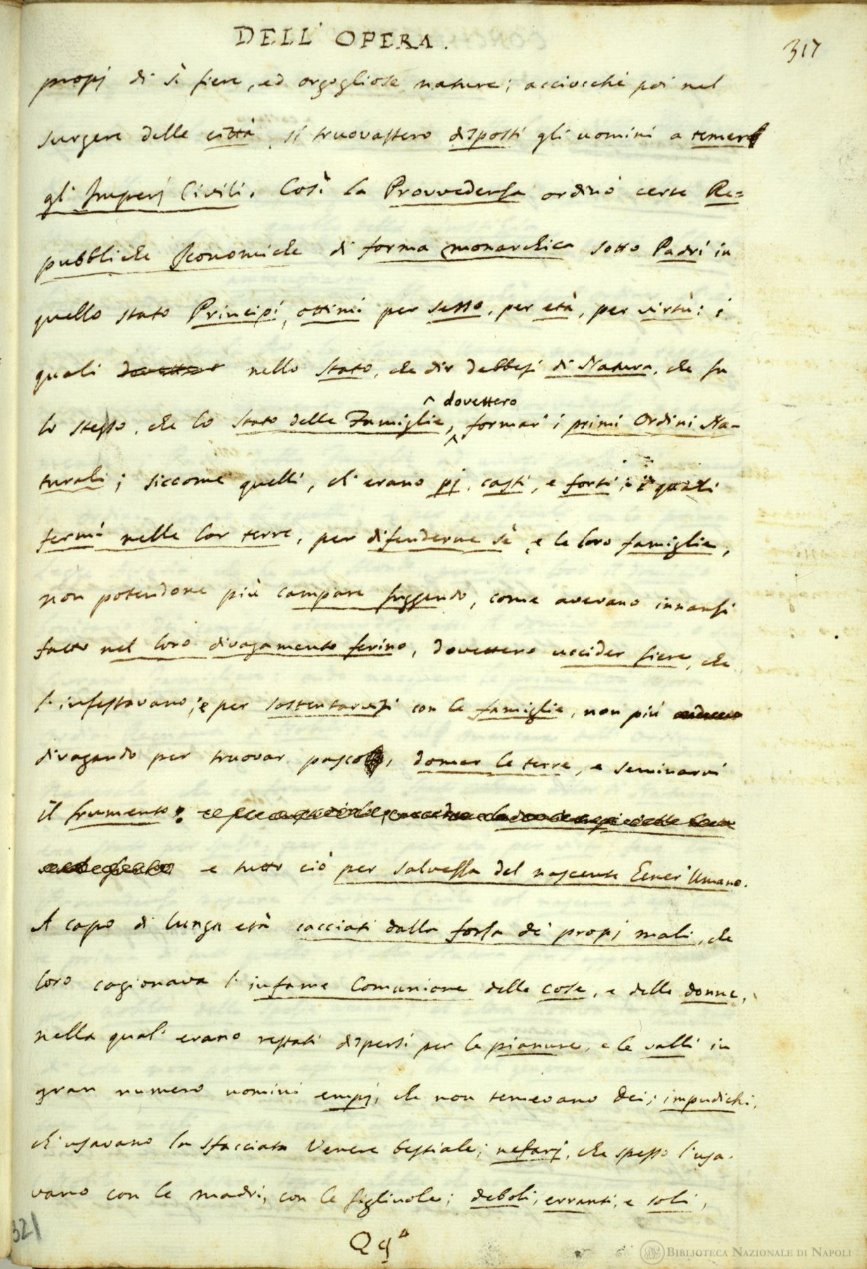 DELL' OPERA.
317
propj di sì fiere, ed orgogliose nature; acciocchè poi nel
surgere delle città, si truovassero disposti gli uomini a temer
gl' Imperj Civili. Così la Provvedenza ordinò certe Re=
pubbliche Iconomiche di forma monarchica sotto Padri in
quello stato Principi, ottimi per sesso, per età, per virtù: i
quali nello Stato, che dir debbesi di Natura, che fu
lo stesso, che lo Stato delle Famiglie, dovettero formar' i primi Ordini Na-
turali; siccome quelli, ch' erano pj, casti, e forti; i quali
fermi nelle lor terre, per difenderne sè, e le loro famiglie,
non potendone più campare fuggendo, come avevano innanzi
fatto nel loro divagamento ferino, dovettero uccider fiere, che
l' infestavano; e per sostentarvisi con le famiglie, non più
divagando per truovar pasco, domar le terre, e seminarvi
il frumento:
e tutto ciò per salvezza del nascente Gener' Umano.
A capo di lunga età cacciati dalla forza de' propj mali, che
loro cagionava l' infame Comunione delle cose, e delle donne,
nella qual' erano restati dispersi per le pianure, e le valli in
gran numero uomini empj, che non temevano Dei; impudichi,
ch' usavano la sfacciata Venere bestiale; nefarj, che spesso l' usa-
vano con le madri, con le figliuole; deboli, erranti, e soli,
321
BIBLIOTECA NAZIONALE DI NAPOLI